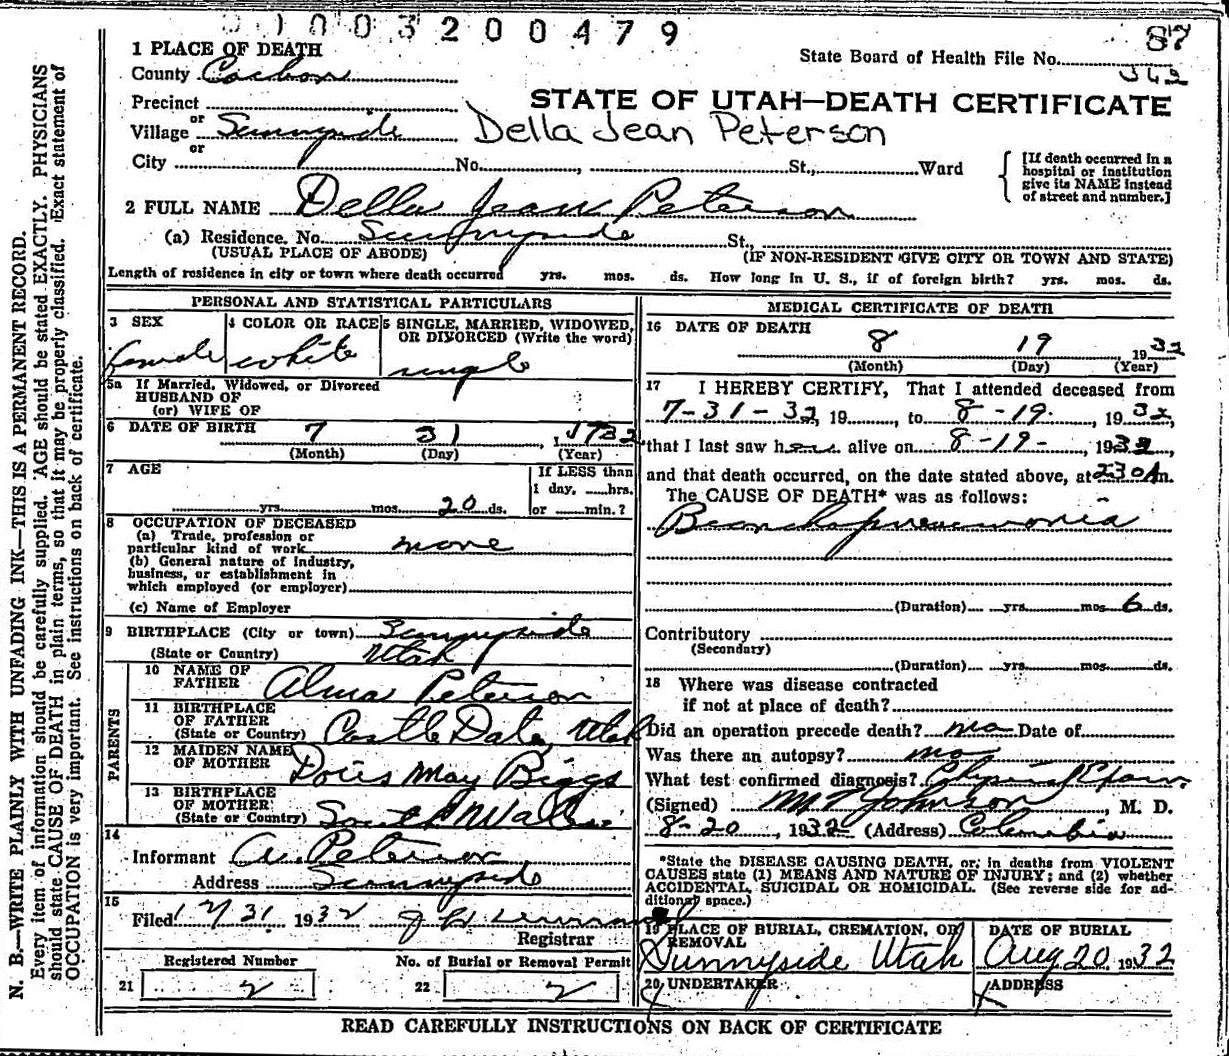 0003200479
87
State Board of Health File No.
342
1 PLACE OF DEATH
County Carbon
STATE OF UTAH—DEATH CERTIFICATE
Precinct
or
Village Sunnyside Della Jean Peterson
or
City No. , St., Ward
[If death occurred in a hospital or institution give its NAME instead of street and number.]
2 FULL NAME Della Jean Peterson
(a) Residence. No. Sunnyside St.,
(USUAL PLACE OF ABODE) (IF NON-RESIDENT GIVE CITY OR TOWN AND STATE)
Length of residence in city or town where death occurred yrs. mos. ds. How long in U. S., if of foreign birth? yrs. mos. ds.
PERSONAL AND STATISTICAL PARTICULARS
3 SEX
female
4 COLOR OR RACE
white
5 SINGLE, MARRIED, WIDOWED, OR DIVORCED (Write the word)
single
5a If Married, Widowed, or Divorced
HUSBAND OF
(or) WIFE OF
6 DATE OF BIRTH 7 31 , 1932
(Month) (Day) (Year)
7 AGE
yrs. mos. 20 ds.
If LESS than
1 day, hrs.
or min.?
8 OCCUPATION OF DECEASED
(a) Trade, profession or
particular kind of work none
(b) General nature of industry,
business, or establishment in
which employed (or employer)
(c) Name of Employer
9 BIRTHPLACE (City or town) Sunnyside
(State or Country) Utah
PARENTS
10 NAME OF
FATHER Alma Peterson
11 BIRTHPLACE
OF FATHER
(State or Country) Castle Dale, Utah
12 MAIDEN NAME
OF MOTHER Doris May Biggs
13 BIRTHPLACE
OF MOTHER
(State or Country) South Wales
14
Informant A. Peterson
Address Sunnyside
15
Filed 12/31 1932
Registrar
Registered Number
21 2
No. of Burial or Removal Permit
22 2
MEDICAL CERTIFICATE OF DEATH
16 DATE OF DEATH
8 19 , 1932
(Month) (Day) (Year)
17 I HEREBY CERTIFY, That I attended deceased from
7-31-32, 19 , to 8-19- , 1932,
that I last saw her alive on 8-19- , 1932,
and that death occurred, on the date stated above, at 230 A m.
The CAUSE OF DEATH* was as follows:
Bronchopneumonia
(Duration) yrs. mos 6 ds.
Contributory
(Secondary)
(Duration) yrs. mos. ds.
18 Where was disease contracted
if not at place of death?
Did an operation precede death? no Date of
Was there an autopsy? no
What test confirmed diagnosis? Physical Exam.
(Signed) Johnson , M. D.
8-20 , 1932 (Address) Columbia
*State the DISEASE CAUSING DEATH, or, in deaths from VIOLENT
CAUSES state (1) MEANS AND NATURE OF INJURY; and (2) whether
ACCIDENTAL, SUICIDAL OR HOMICIDAL. (See reverse side for ad-
ditional space.)
19 PLACE OF BURIAL, CREMATION, OR
REMOVAL
Sunnyside Utah
DATE OF BURIAL
Aug 20 1932
20 UNDERTAKER
X
ADDRESS
X
READ CAREFULLY INSTRUCTIONS ON BACK OF CERTIFICATE
N. B.—WRITE PLAINLY WITH UNFADING INK—THIS IS A PERMANENT RECORD.
Every item of information should be carefully supplied. AGE should be stated EXACTLY. PHYSICIANS
should state CAUSE OF DEATH in plain terms, so that it may be properly classified. Exact statement of
OCCUPATION is very important. See instructions on back of certificate.